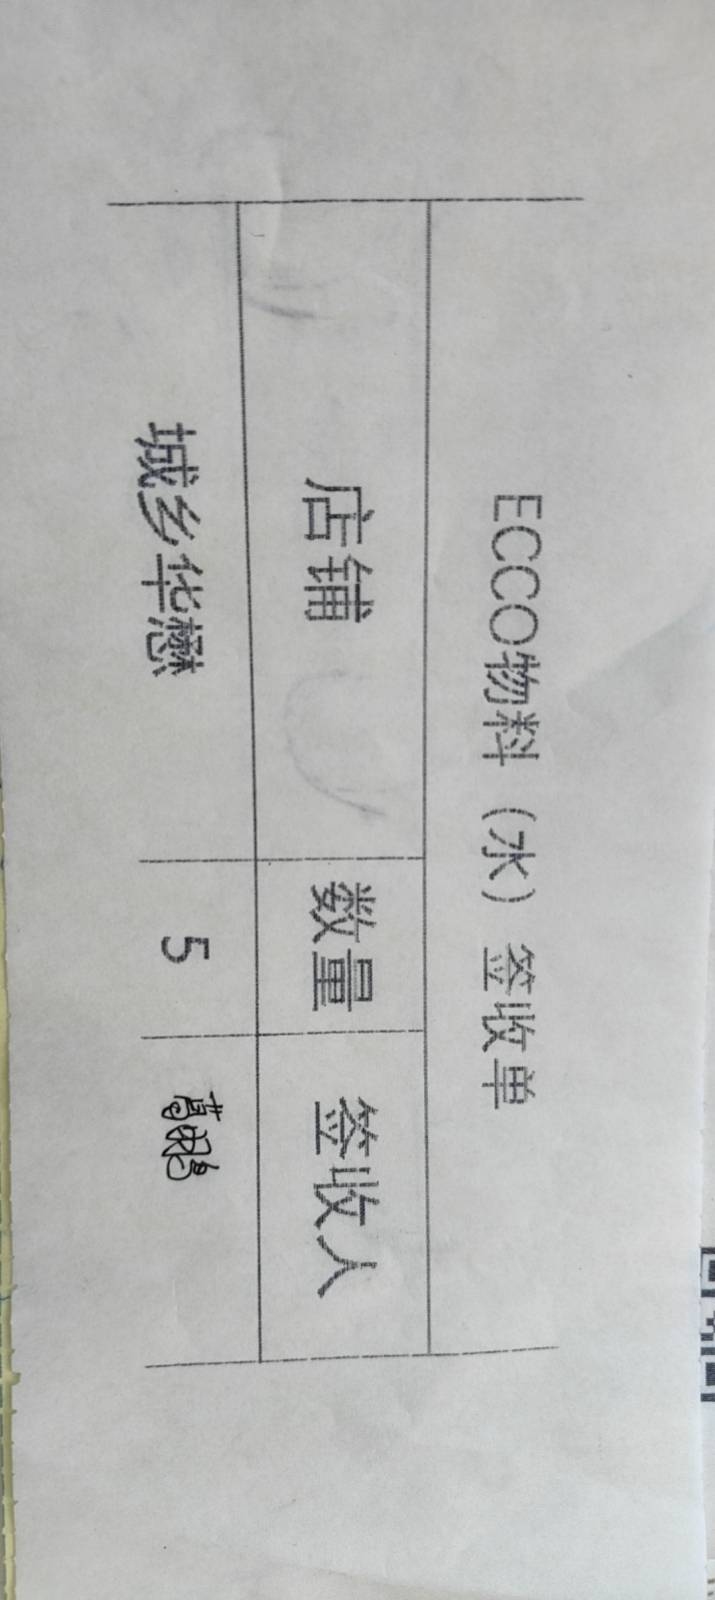 ECCO物料（水）签收单
店铺 数量 签收人
城乡华懋 5